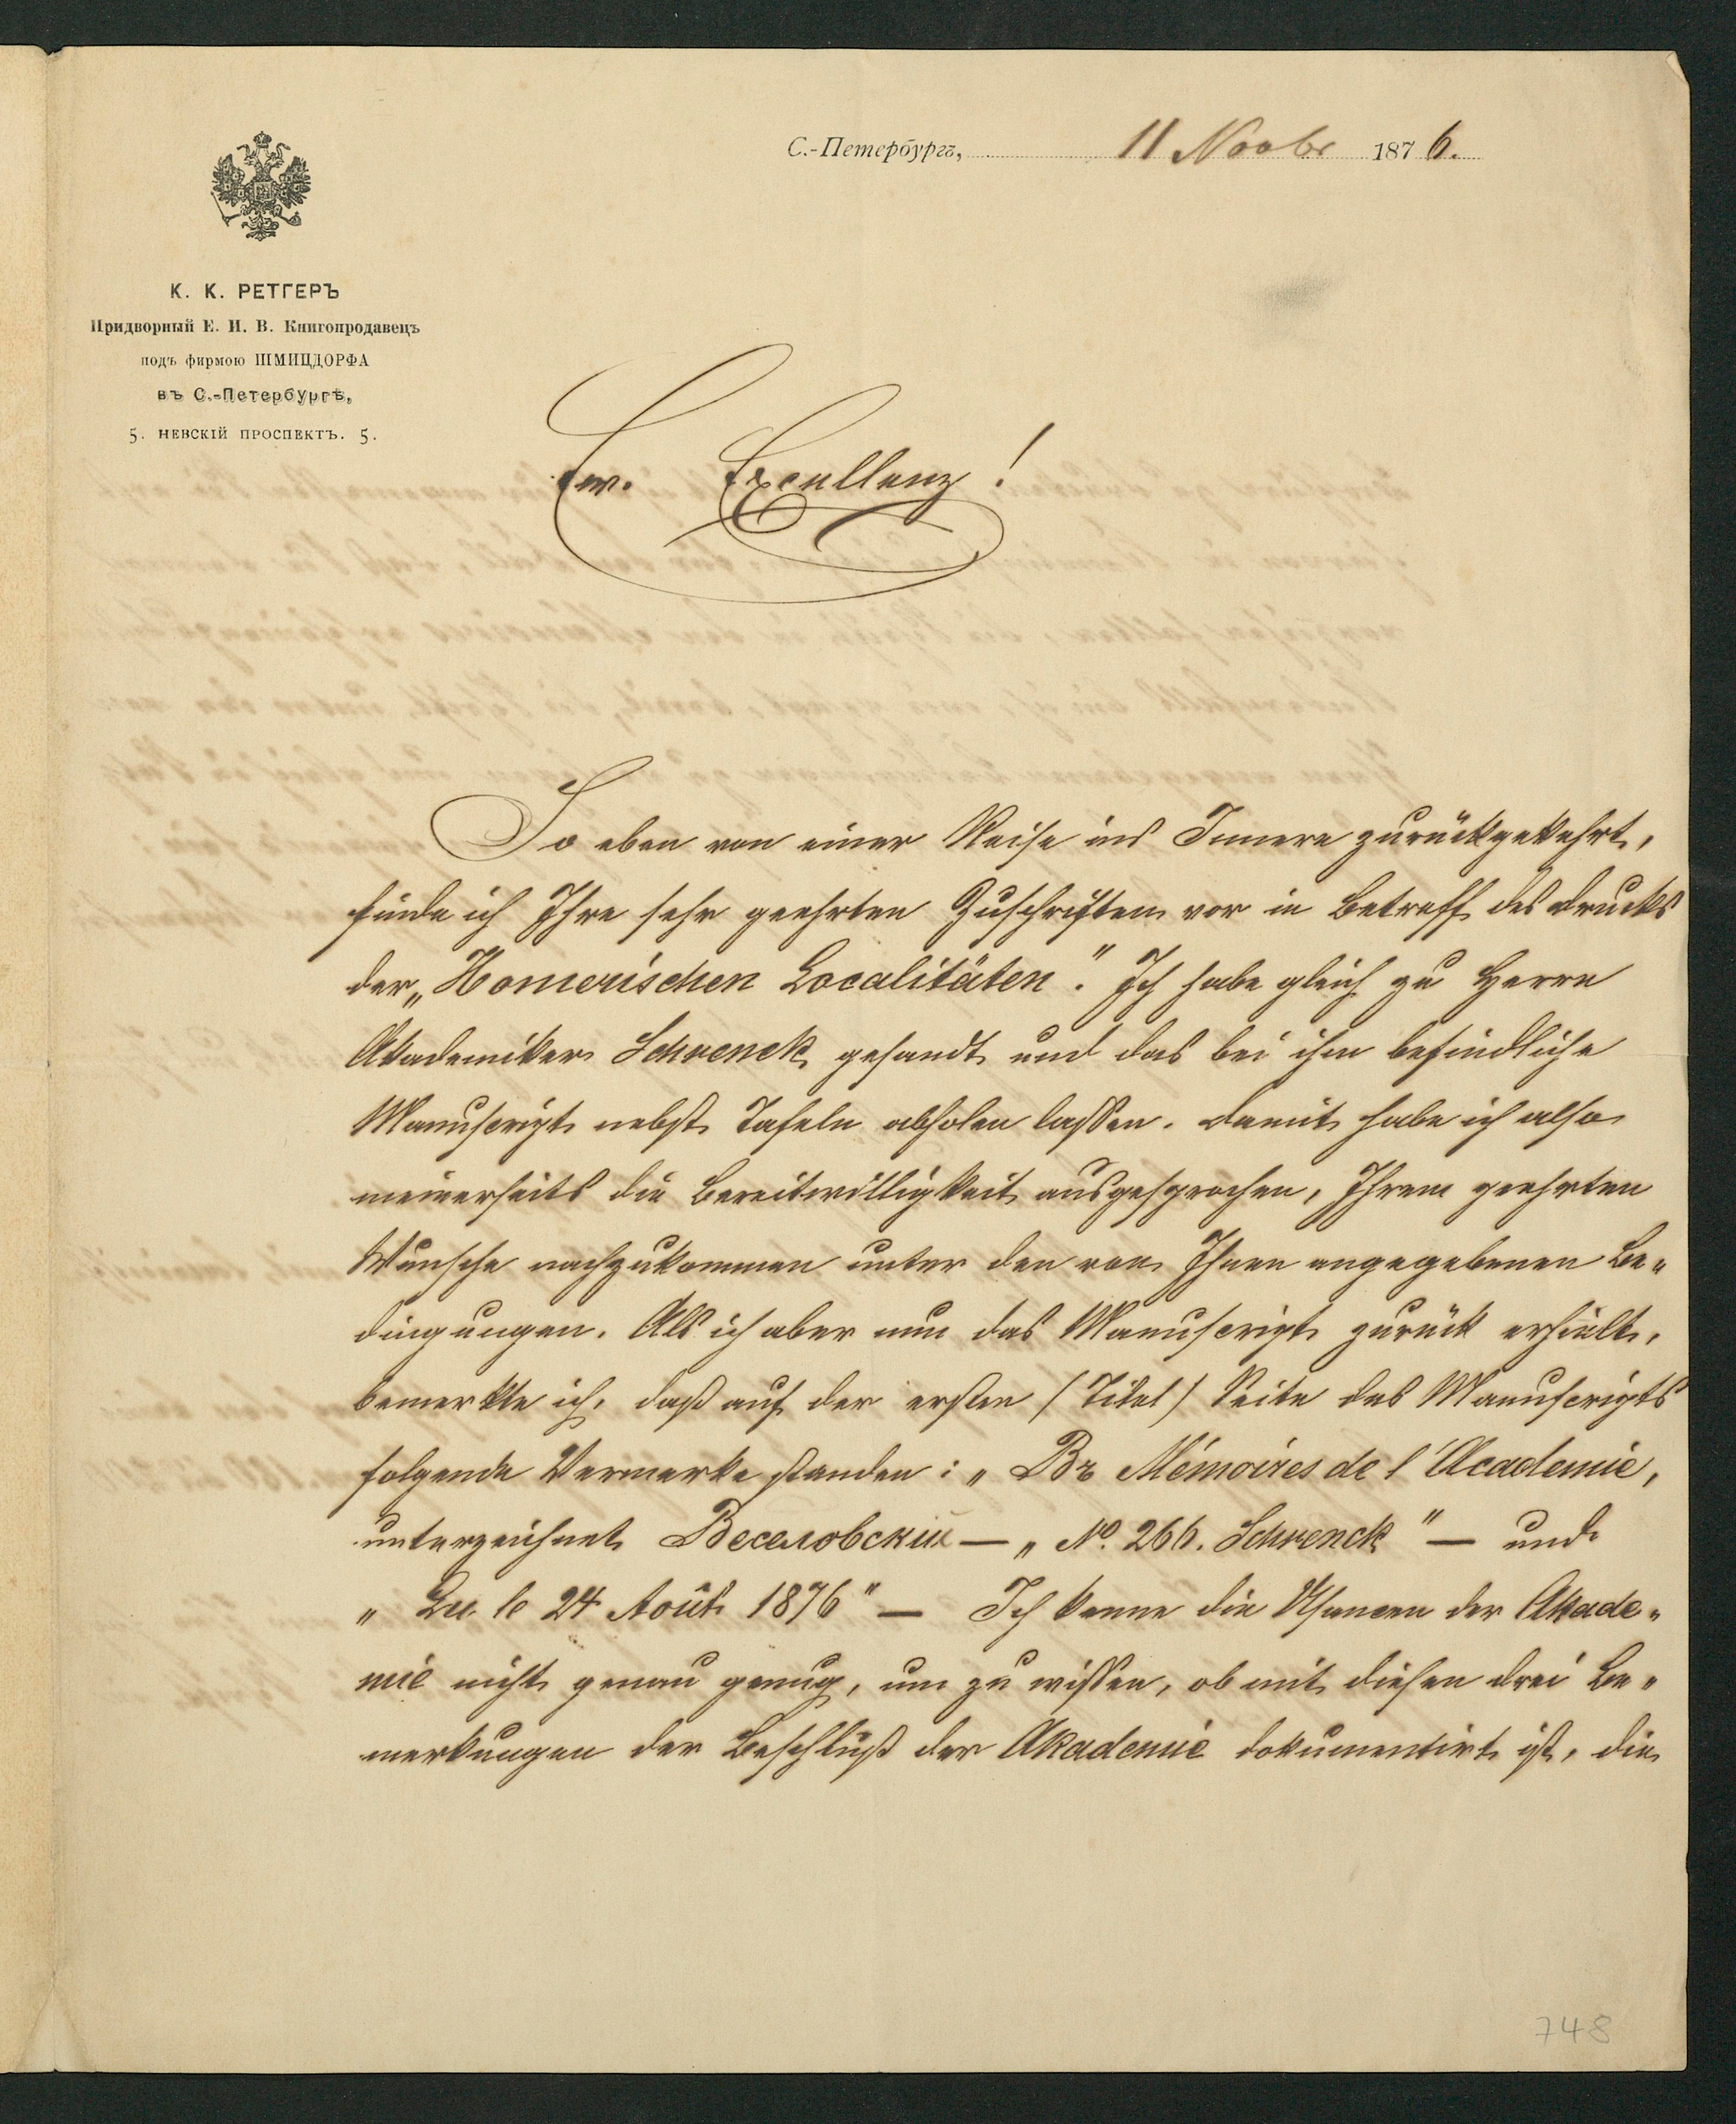 С.-Петербургъ, 11 Novbr 1876.
К. К. РЕТГЕРЪ
Придворный Е. И. В. Книгопродавецъ
подъ фирмою ШМИЦДОРФА
въ С.-Петербургѣ,
5. НЕВСКІЙ ПРОСПЕКТЪ. 5.
Ew. Excellenz!
So eben von einer Reise ins Innere zurückgekehrt,
finde ich Ihre sehr geehrten Zuschriften vor in Betreff des Drucks
der „Homerischen Localitäten". Ich habe gleich zu Herrn
Akademiker Schrenck gesandt und das bei ihm befindliche
Manuscript nebst Tafeln abholen lassen. Damit habe ich also
meinerseits die Bereitwilligkeit ausgesprochen, Ihrem geehrten
Wunsche nachzukommen unter den von Ihnen angegebenen Be„
dingungen. Als ich aber nun das Manuscript zurück erhielt,
bemerkte ich, daß auf der ersten (Titel) Seite des Manuscripts
folgende Vermerke standen: „Въ Mémoires de l'Academie,
unterzeichnet Веселовскій — „No. 266. Schrenck" — und
„Lu le 24 Août 1876" — Ich kenne die Usancen der Akade„
mie nicht genau genug, um zu wissen, ob mit diesen drei Be„
merkungen der Beschluß der Akademie dokumentirt ist, die
748